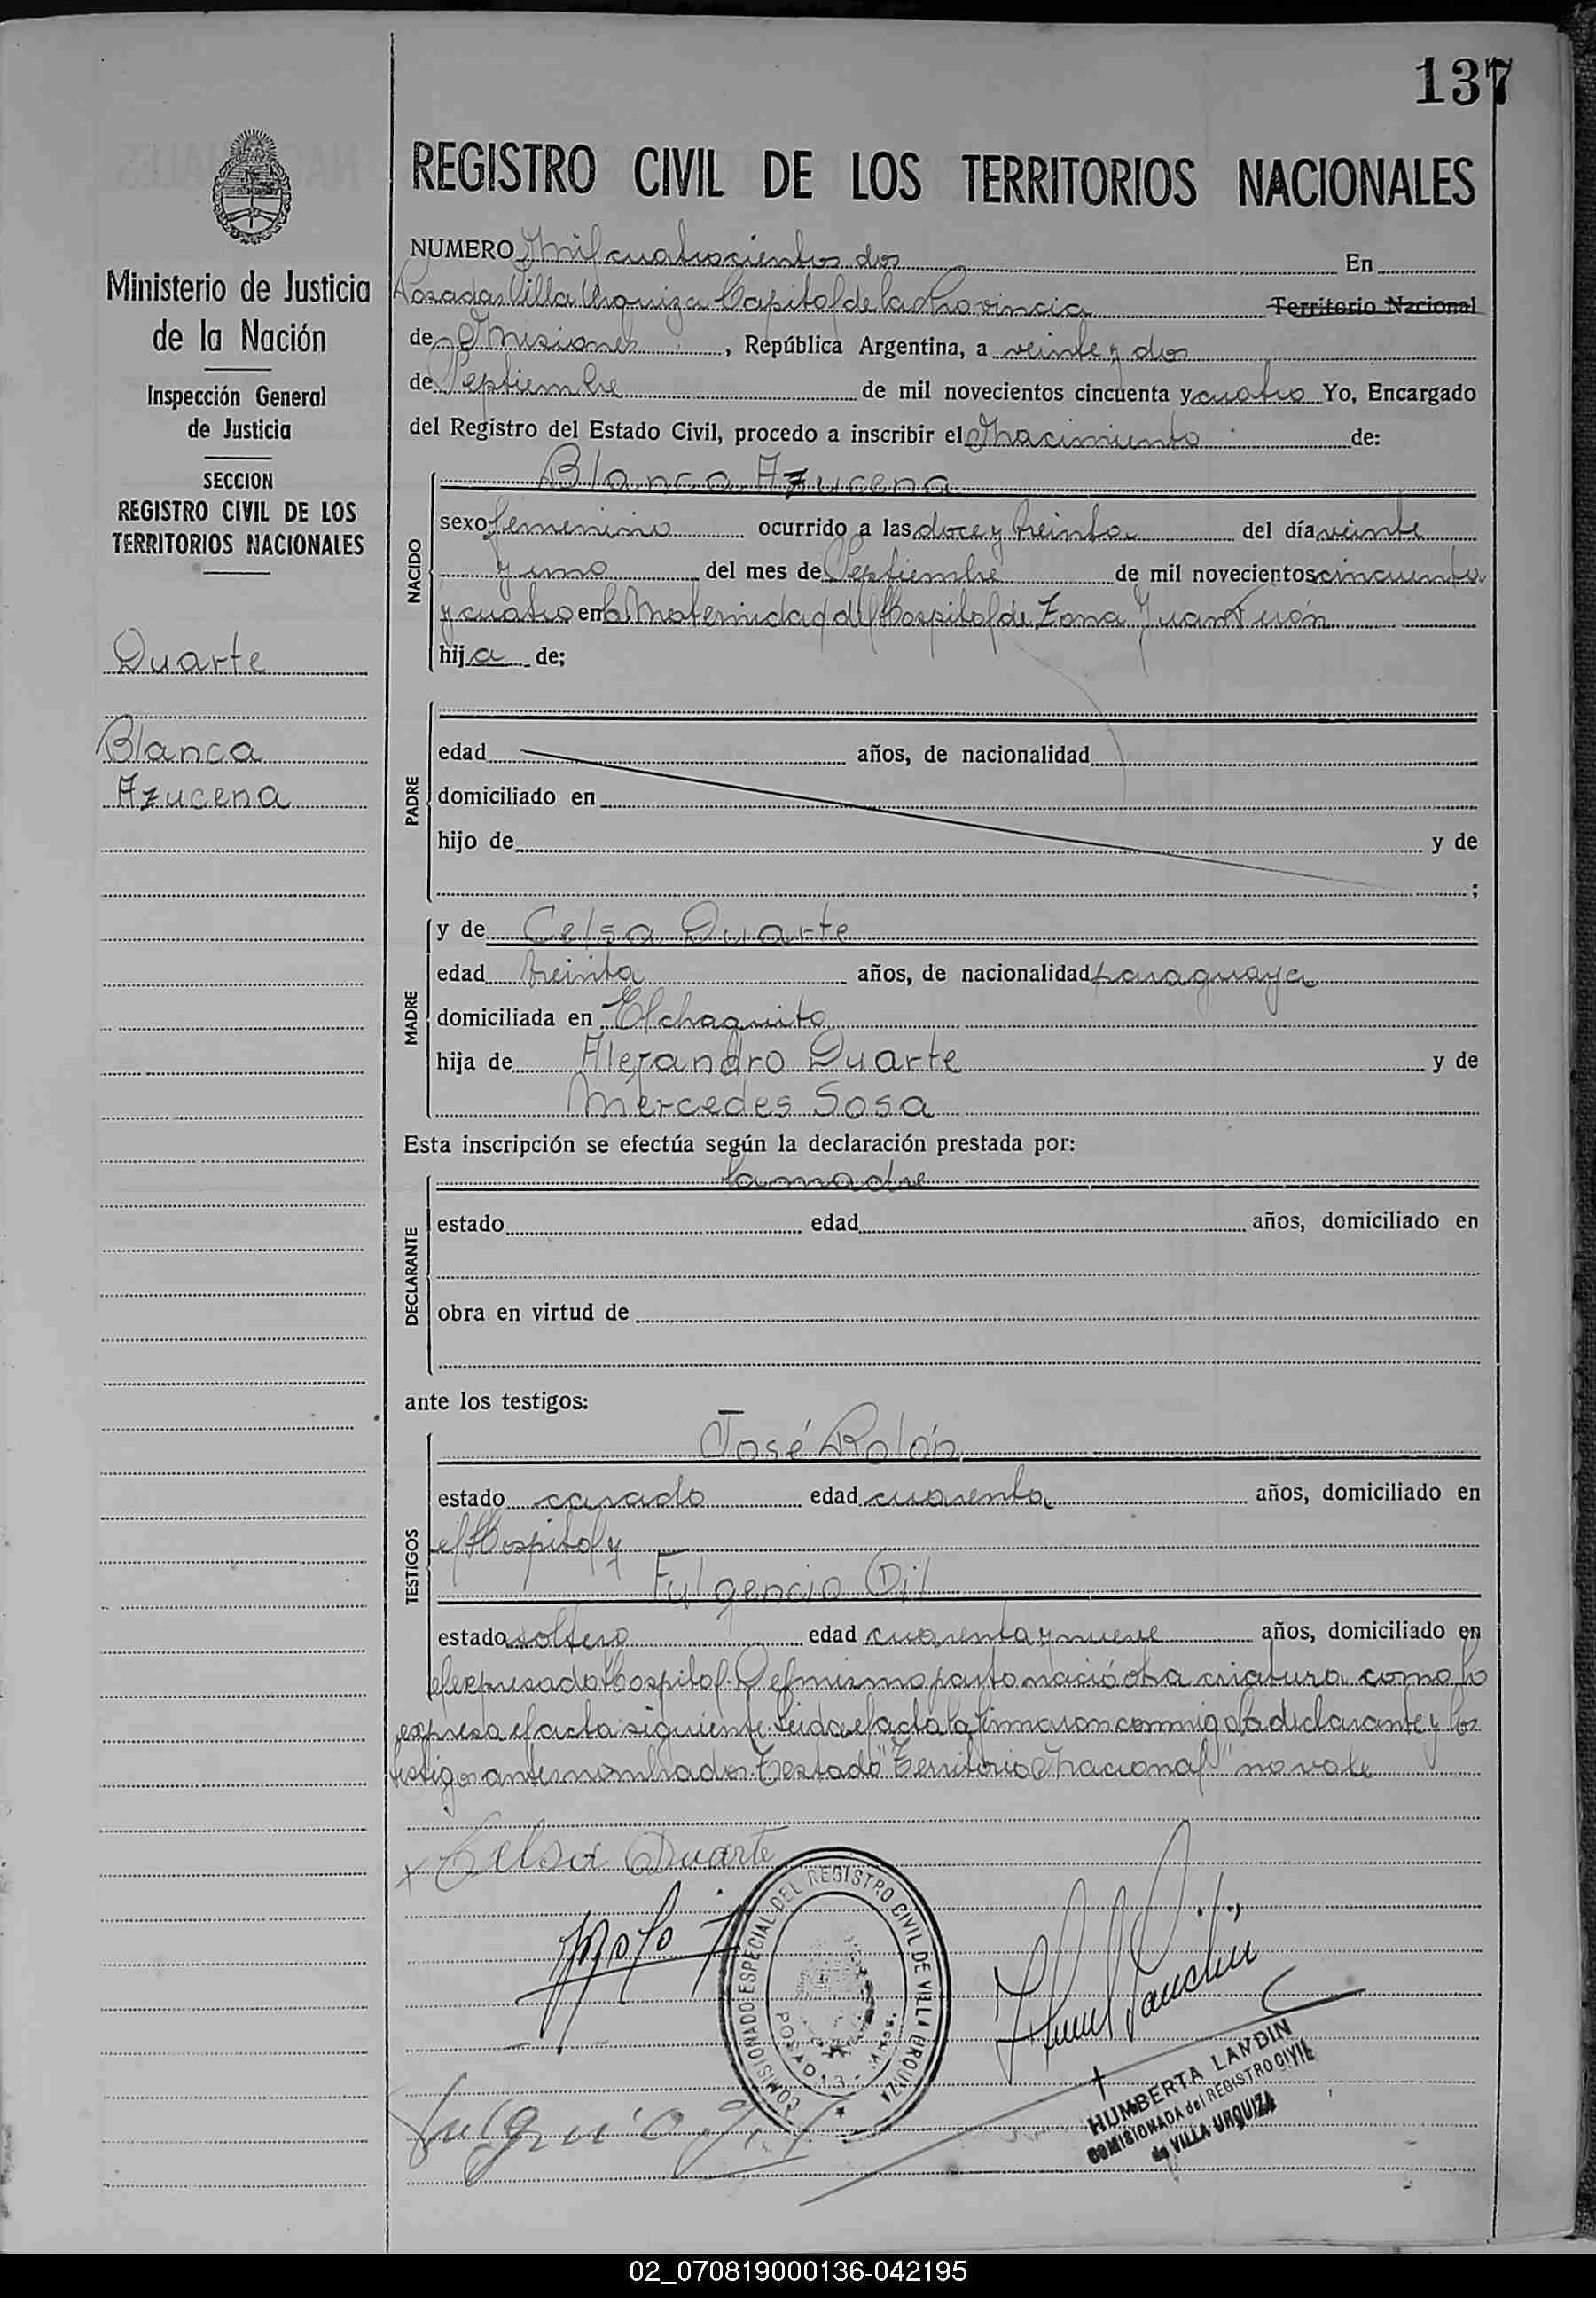 137
REGISTRO CIVIL DE LOS TERRITORIOS NACIONALES
Ministerio de Justicia
de la Nación
Inspección General
de Justicia
SECCION
REGISTRO CIVIL DE LOS
TERRITORIOS NACIONALES
Duarte
Blanca
Azucena
NUMERO Mil cuatrocientos dos En
Posadas Villa Urquiza Capital de la Provincia Territorio Nacional
de Misiones, República Argentina, a veinte y dos
de Septiembre de mil novecientos cincuenta y cuatro Yo, Encargado
del Registro del Estado Civil, procedo a inscribir el Nacimiento de:
NACIDO
Blanca Azucena
sexo femenino ocurrido a las doce y treinta del día veinte
y uno del mes de Septiembre de mil novecientos cincuenta
y cuatro en la Maternidad del Hospital de Zona Juan Perón
hija de;
PADRE
edad años, de nacionalidad
domiciliado en
hijo de y de
;
MADRE
y de Celsa Duarte
edad treinta años, de nacionalidad paraguaya
domiciliada en El chaquito
hija de Alejandro Duarte y de
Mercedes Sosa
Esta inscripción se efectúa según la declaración prestada por:
DECLARANTE
la madre
estado edad años, domiciliado en
obra en virtud de
ante los testigos:
TESTIGOS
José Rolón
estado casado edad cuarenta años, domiciliado en
el Hospital y
Fulgencio Gil
estado soltero edad cuarenta y nueve años, domiciliado en
el expresado Hospital. Del mismo parto nació otra criatura como lo
expresa el acta siguiente. Leida el acta la firmaron conmigo la declarante y los
testigos antes nombrados. Testado "Territorio Nacional" no vale
x Celsa Duarte
COMISIONADO ESPECIAL DEL REGISTRO CIVIL DE VILLA URQUIZA
POSADAS
HUMBERTA LANDIN
COMISIONADA del REGISTRO CIVIL
de VILLA URQUIZA
02_070819000136-042195